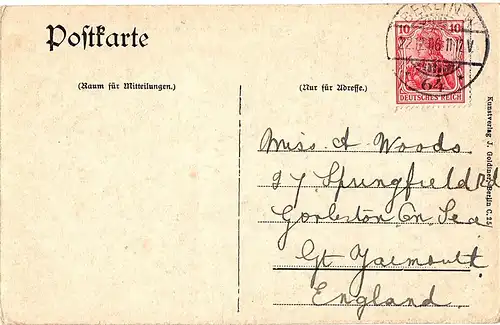 Postkarte
(Raum für Mitteilungen.)
(Nur für Adresse.)
BERLIN
10 10
06 11-12 V.
64
DEUTSCHES REICH
Kunstverlag J. Goldiner, Berlin C. 25
Miss A Woods
27 Springfield Rd
Gorleston On Sea
Gt Yarmouth
England